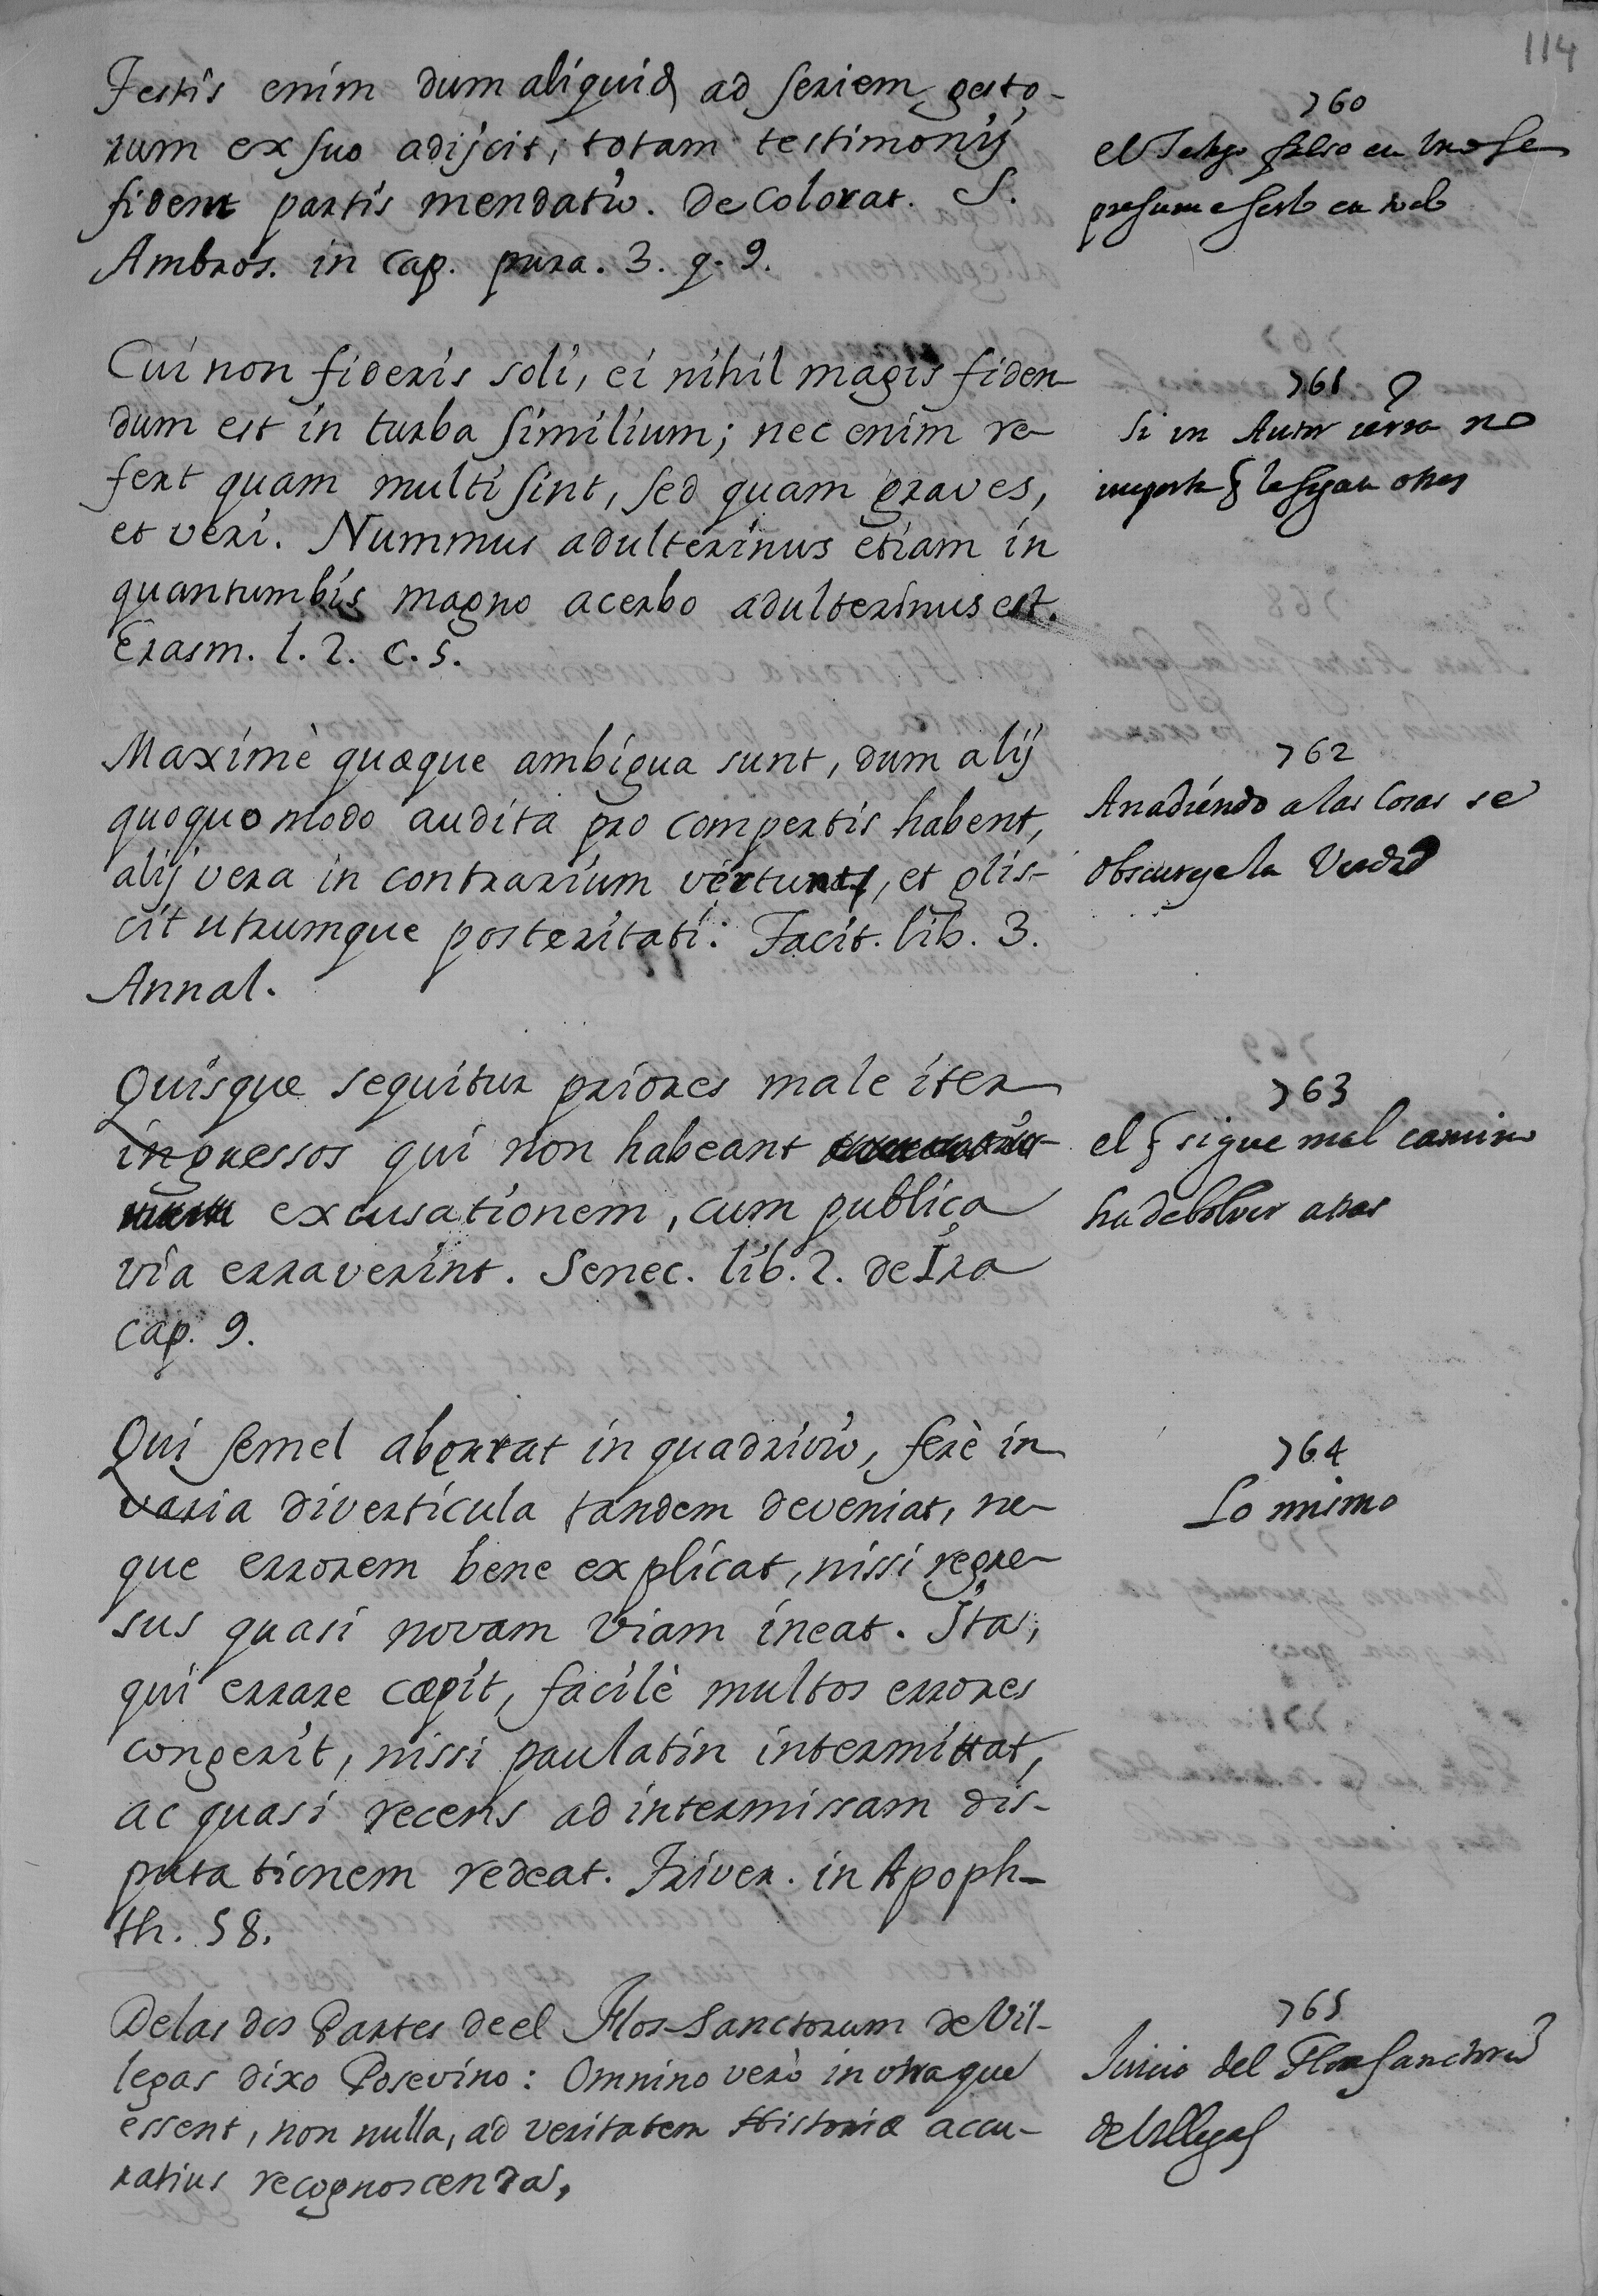 114
Testis enim dum aliquid ad seriem gesto-
rum ex suo adijcit, totam testimonij
fidem partis mendatio. De Colorat. S.
Ambros. in cap. pura. 3. q. 9.
760
el Testigo falso en uno se
presume serlo en todo
Cui non fideris soli, ei nihil magis fiden-
dum est in turba similium; nec enim re-
fert quam multi sint, sed quam graves,
et veri. Nummus adulterinus etiam in
quantumbis magno acerbo adulterinus est.
Erasm. l. 2. c. 5.
761
Si un Autor ierra no
importa q̃ le sigan otros
Maximè quæque ambigua sunt, dum alij
quoquo modo audita pro compertis habent,
alij vera in contrarium vertunt, et glis-
cit utrumque posteritati: Tacit. lib. 3.
Annal.
762
Anadiendo a las Cosas se
obscureze la Verdad
Quisque sequitur priores male iter
ingressos qui non habeant
excusationem, cum publica
via erraverint. Senec. lib. 2. de Ira
cap. 9.
763
el q̃ sigue mal camino
ha de bolver atras
Qui semel aberrat in quadrivio, ferè in
varia diverticula tandem deveniat, ne-
que errorem bene explicat, nissi regre-
sus quasi novam viam ineat. Ita,
qui errare cœpit, facilè multos errores
congerit, nissi paulatin intermittat,
ac quasi recens ad intermissam dis-
putationem redeat. Triver. in Apoph-
th. 58.
764
Lo mismo
De las dos Partes de el Flos-Sanctorum de Vil-
legas dixo Posevino: Omnino verò in utraque
essent, non nulla, ad veritatem Historiæ accu-
ratius recognoscenda,
765
Juicio del Flos Sanctorũ
de Villegas